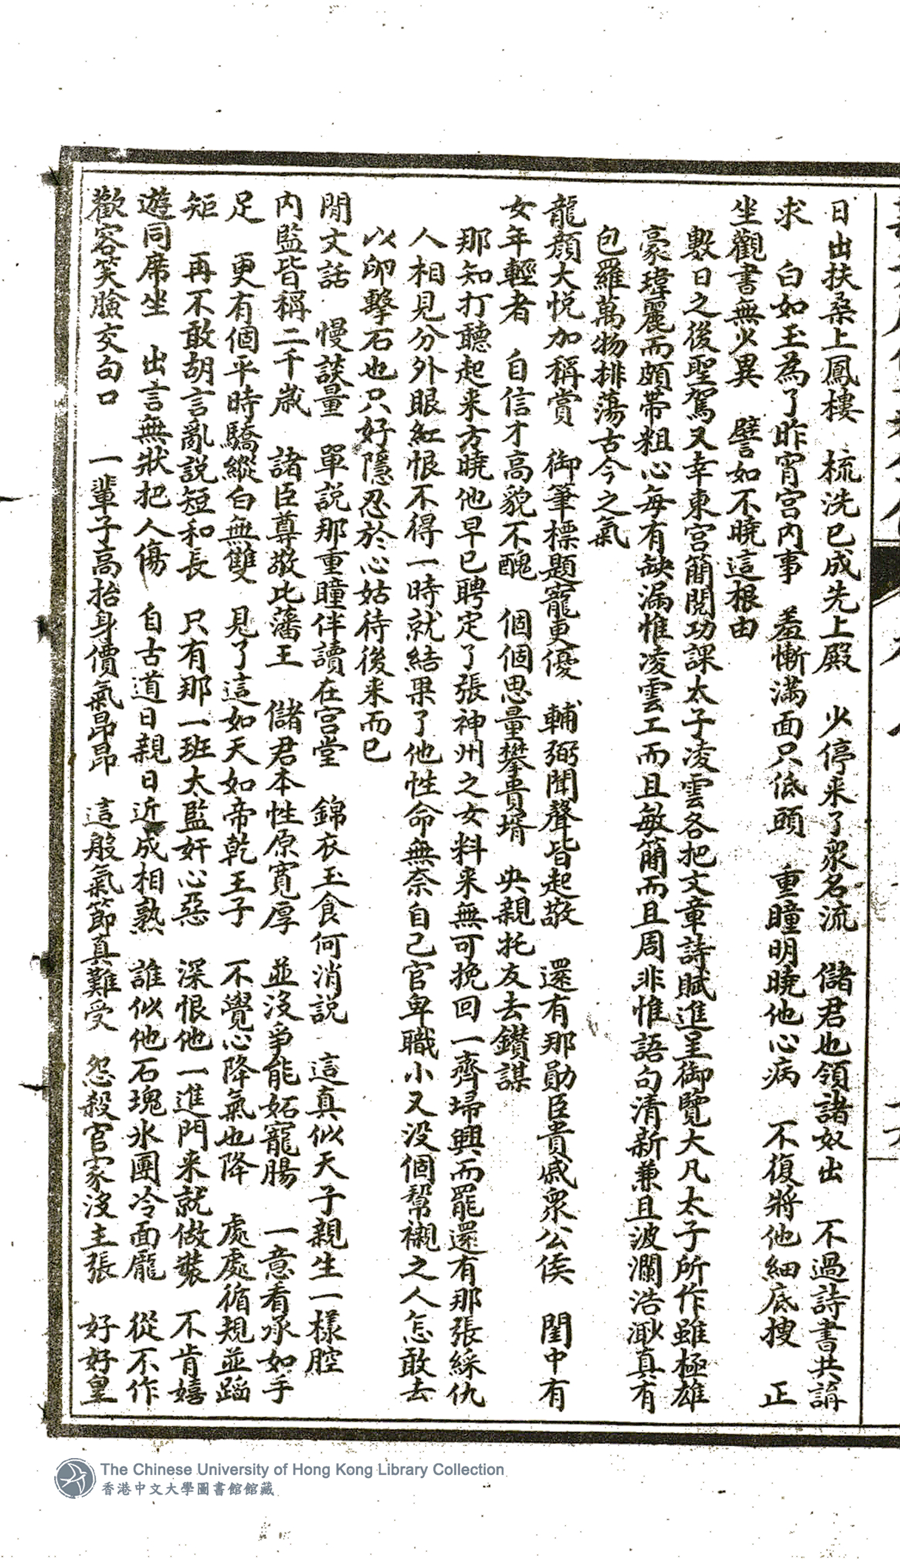 日出扶桑上鳳樓　梳洗已成先上殿　少停來了眾名流　儲君也領諸奴出　不過詩書共講
求　白如玉為了昨宵宮內事　羞慚滿面只低頭　重瞳明曉他心病　不復將他細底搜　正
坐觀書無少異　譬如不曉這根由
數日之後聖駕又幸東宮簡閱功課太子凌雲各把文章詩賦進呈御覽大凡太子所作雖極雄
豪瑋麗而頗帶粗心每有缺漏惟凌雲工而且敏簡而且周非惟語句清新兼且波瀾浩渺真有
包羅萬物排蕩古今之氣
龍顏大悅加稱賞　御筆標題寵更優　輔弼聞聲皆起敬　還有那勛臣貴戚眾公侯　閨中有
女年輕者　自信才高貌不醜　個個思量攀貴壻　央親托友去鑽謀
那知打聽起來方曉他早已聘定了張神州之女料來無可挽回一齊埽興而罷還有那張綵仇
人相見分外眼紅恨不得一時就結果了他性命無奈自己官卑職小又沒個幫襯之人怎敢去
以卵擊石也只好隱忍於心姑待後來而已
閒文話　慢談量　單說那重瞳伴讀在宮堂　錦衣玉食何消說　這真似天子親生一樣腔
內監皆稱二千歲　諸臣尊敬比藩王　儲君本性原寬厚　並沒爭能妬寵腸　一意看承如手
足　更有個平時驕縱白無雙　見了這如天如帝乾王子　不覺心降氣也降　處處循規並蹈
矩　再不敢胡言亂說短和長　只有那一班太監奸心惡　深恨他一進門來就做裝　不肯嬉
遊同席坐　出言無狀把人傷　自古道日親日近成相熟　誰似他石塊氷團冷面龐　從不作
歡容笑臉交句口　一輩子高抬身價氣昂昂　這般氣節真難受　怨殺官家沒主張　好好皇
The Chinese University of Hong Kong Library Collection
香港中文大學圖書館館藏